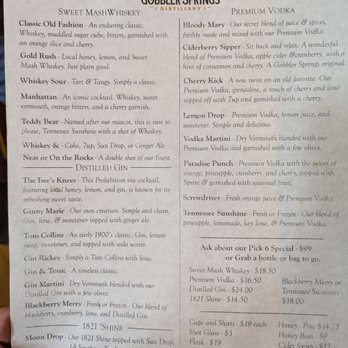 GOBBLER SPRINGS
DISTILLERY
SWEET MASH WHISKEY
Classic Old Fashion - An enduring classic.
Whiskey, muddled sugar cube, bitters, garnished with
an orange slice and cherry.
Gold Rush - Local honey, lemon, and Sweet
Mash Whiskey. Just plain good.
Whiskey Sour - Tart & Tangy. Simply a classic.
Manhattan - An iconic cocktail. Whiskey, sweet
vermouth, orange bitters, and a cherry garnish.
Teddy Bear - Named after our mascot, this is sure to
please, Tennessee Sunshine with a shot of Whiskey.
Whiskey & - Coke, 7up, Sun Drop, or Ginger Ale
Neat or On the Rocks - A double shot of our finest.
DISTILLED GIN
The Bee's Knees - This Prohibition era cocktail,
featuring local honey, lemon, and gin, is known for its
refreshing sweet taste.
Ginny Marie - Our own creation. Simple and clean.
Gin, lime, & sweetener topped with ginger ale.
Tom Collins - An early 1900's classic. Gin, lemon
juice, sweetener, and topped with soda water.
Gin Rickey - Simply a Tom Collins with lime.
Gin & Tonic - A timeless classic.
Gin Martini - Dry Vermouth blended with our
Distilled Gin with a few olives.
Blackberry Merry - Fresh or Frozen - Our blend of
blackberry, cranberry, lime, and Distilled Gin.
1821 'SHINE
Moon Drop - Our 1821 Shine topped with Sun Drop.
PREMIUM VODKA
Bloody Mary - Our secret blend of juice & spices,
freshly made and mixed with our Premium Vodka.
Ciderberry Sipper - Sit back and relax. A wonderful
blend of Premium Vodka, apple cider &cranberry, with a
hint of cinnamon and cherry. A Gobbler Springs original.
Cherry Kick - A new twist on an old favorite. Our
Premium Vodka, grenadine, a touch of cherry and lime
topped off with 7up and garnished with a cherry.
Lemon Drop - Premium Vodka, lemon juice, and
sweetener. Simple and delicious.
Vodka Martini - Dry Vermouth blended with our
Premium Vodka and garnished with a few olives.
Paradise Punch - Premium Vodka with the juices of
orange, pineapple, cranberry, and cherry, topped with
Sprite & garnished with seasonal fruit.
Screwdriver - Fresh orange juice & Premium Vodka.
Tennessee Sunshine - Fresh or Frozen - Our blend of
pineapple, lemonade, key lime, & Premium Vodka.
Ask about our Pick 6 Special - $99
or Grab a bottle or bag to go.
Sweet Mash Whiskey - $18.50
Premium Vodka - $16.50
Distilled Gin - $24.00
1821 Shine - $14.50
Blackberry Merry or
Tennessee Sunshine
$18.00
Caps and Shirts - $19 each
Shot Glass - $3
Flask - $19
Honey Pint $14.75
Honey Bear - $9